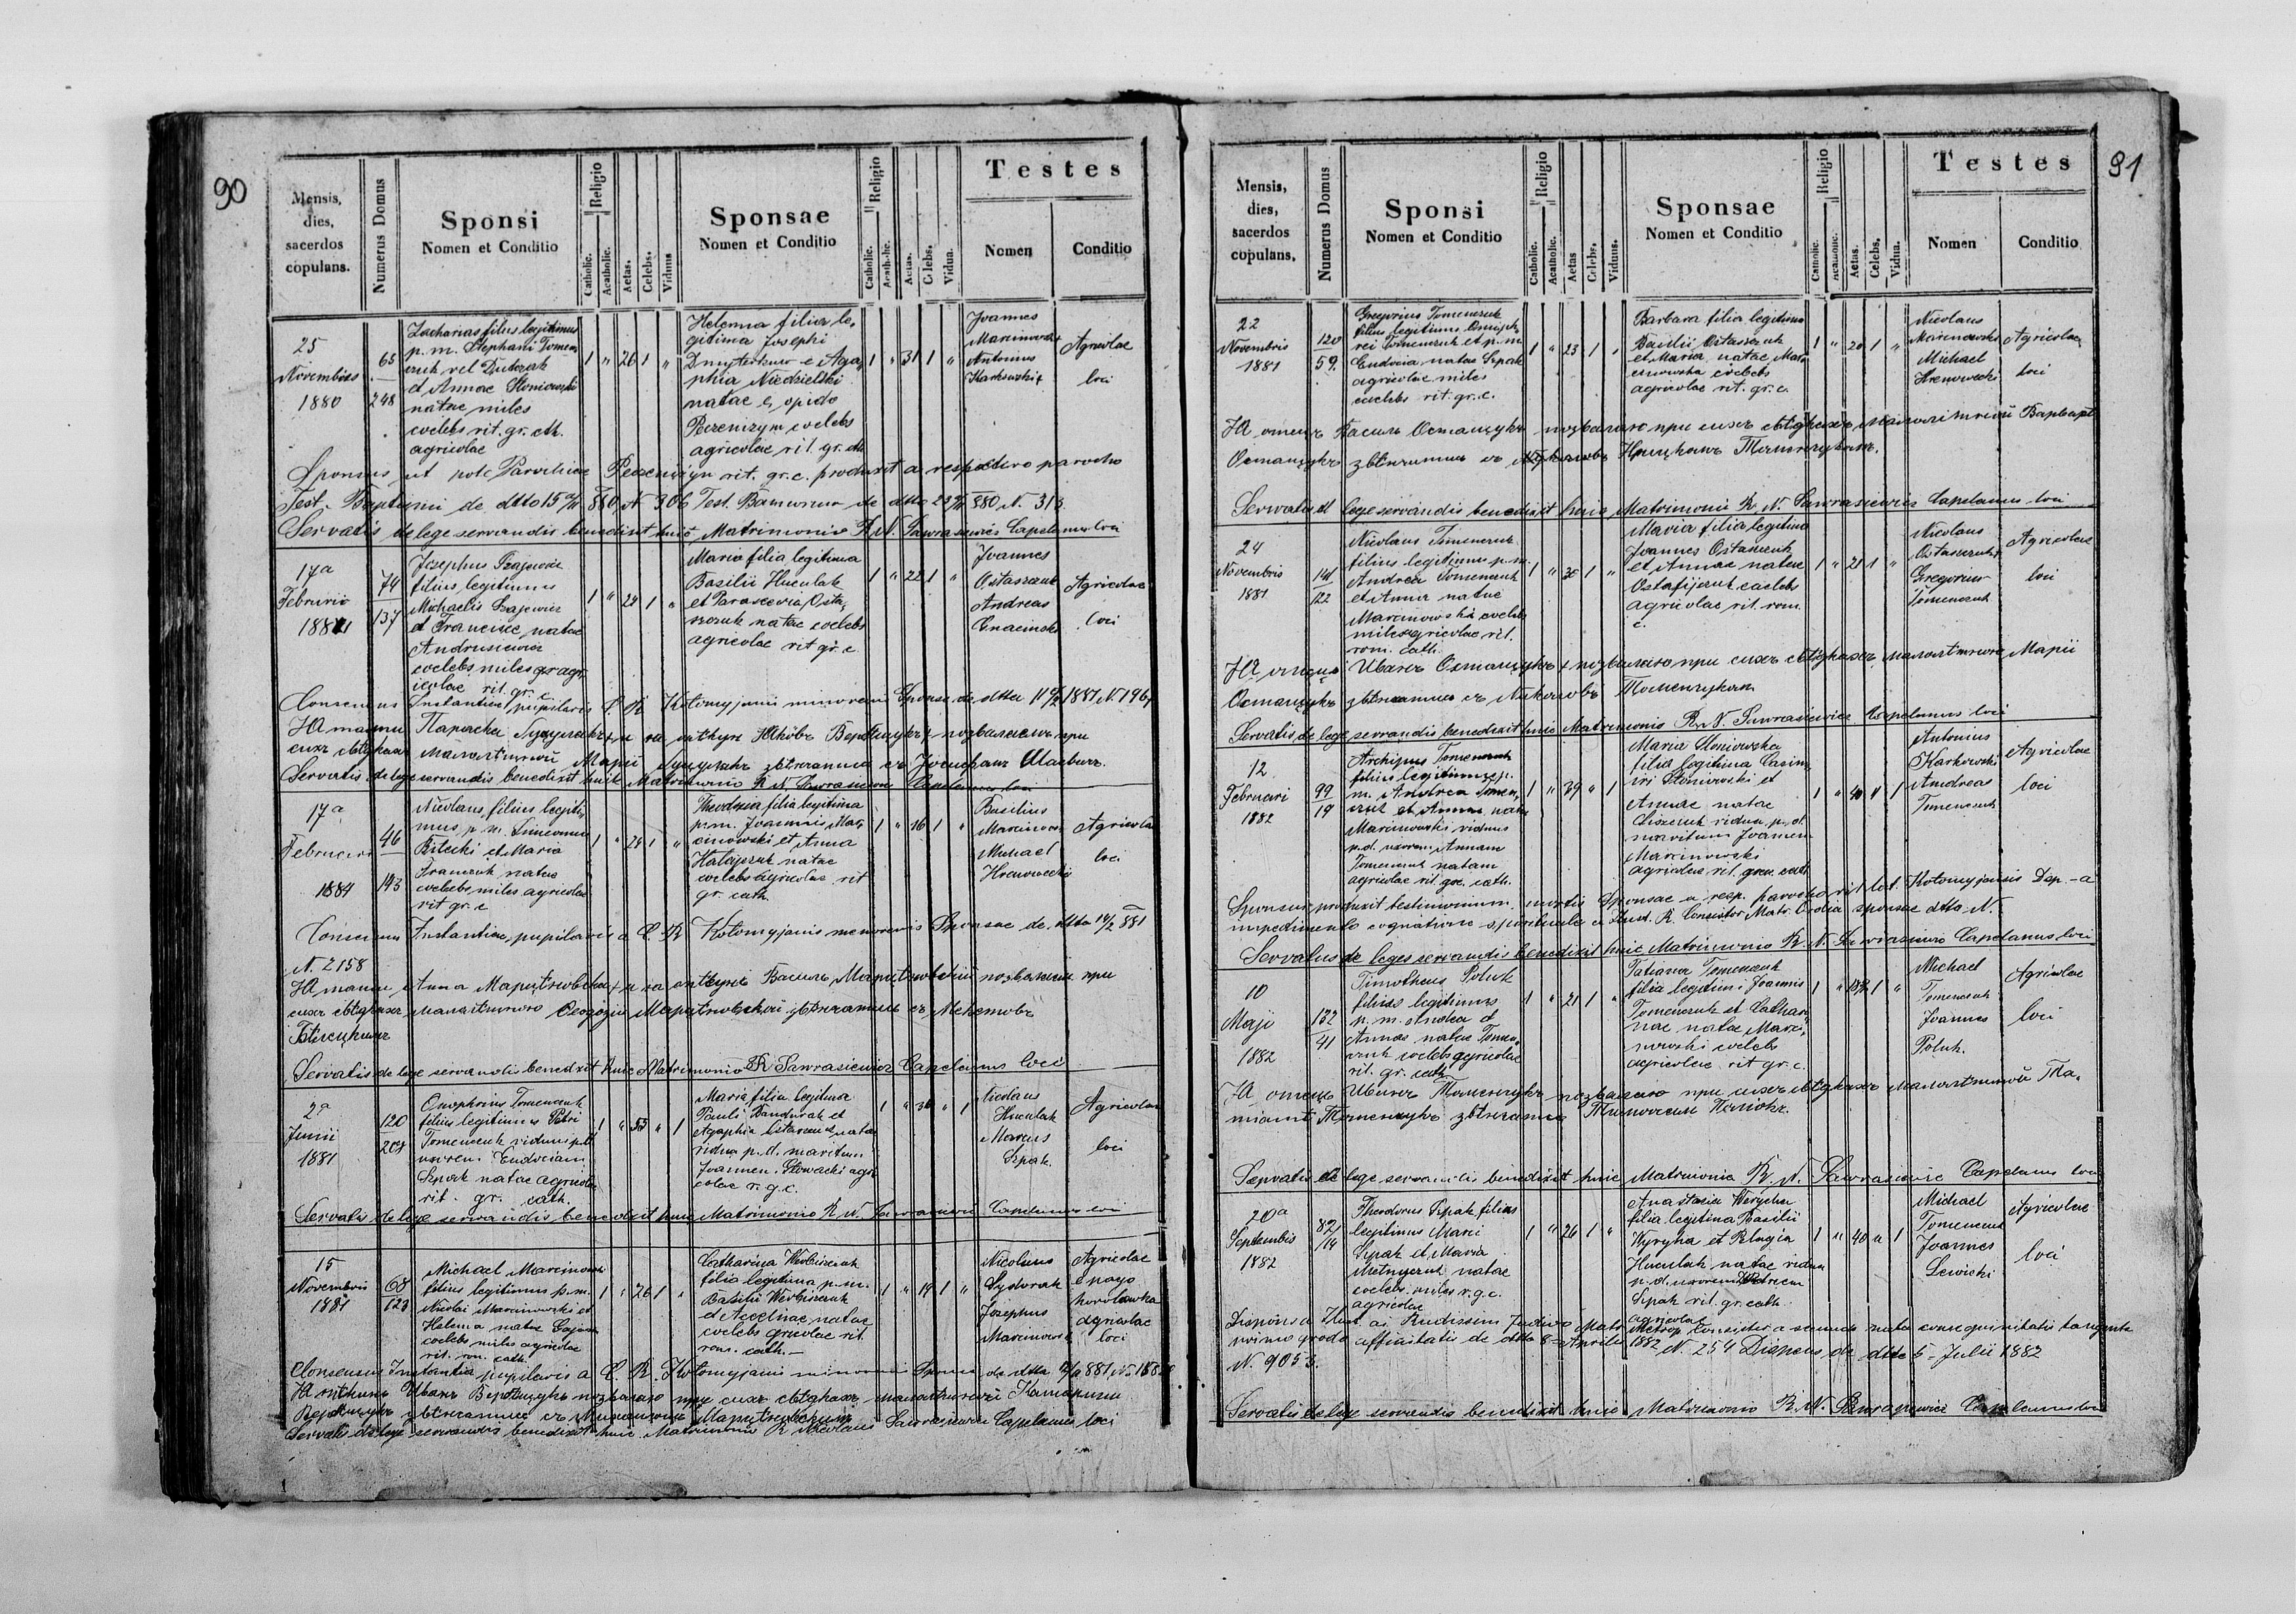 90
Mensis,
dies,
sacerdos
copulans.
Numerus Domus
Sponsi
Nomen et Conditio
Religio
Catholic.
Acatholic.
Aetas.
Celebs.
Viduus
Sponsae
Nomen et Conditio
Religio
Catholic.
Acatholic.
Aetas.
Celebs.
Vidua.
Testes
Nomen
Conditio
25
Novembris
1880
65
248
Zacharias filius legitimus
p. m. Stephani Tomen
czuk vel Dutczak
et Annae Słoniowski
natae miles
coelebs rit. gr. cth.
agricolae
1 " 26 1 "
Helenna filia le,
gitima Josephi
e Aga,
phia Niedzielski
natae e opido
Peczeniżyn coelebs
agricolae rit. gr. cth
1 " 31 1 "
Joannes
Marcinowski
Antonius
Karkowski
Agricolae
loci
Sponsus ut pote Parochiae Peczeniżyn rit. gr. c. produxit a respectivo parocho
Test. Baptismi de dtto 15 880 N 306 Test. Bannorum de dtto 880 N. 313
Servatis de lege servandis benedixit huic Matrimonio R. N. Sawrasiewicz Capelanus loci
17a
Februrii
1881
74
137
Josephus Szajewicz
filius legitimus
Michaelis Szajewicz
et Francisce natae
Andrusiewicz
coelebs miles gr agr
icolae rit. gr. c.
1 " 24 1 "
Maria filia legitima
Basilii Huculak
et Parascevia Osta,
szczuk natae coelebs
agricolae rit gr. c
1 " 22 1 "
Joannes
Ostaszczuk
Andreas
Gnacinski
Agricolae
loci
Consensus Instantiae pupilaris C. R. Kołomyjanis minorennis Sponsae de dtto 11/2 1881 N. 1967
Я мати Параска Гуцулякъ + и я опікунъ Яковъ + позваляемъ при
сихъ свѣдкахъ малолѣтной Маріи Гуцулякъ звѣнчатися съ Іосифомъ Шаевичъ.
Servatis de lege servandis benedixit huic Matrimonio R N. Sawrasiewicz Capelanus loci
17a
Februari
1881
46
193
Nicolaus filius legiti,
mus p. m. Simeonis
Bilecki et Maria
Franczuk natae
coelebs miles agricolae
rit gr. c
1 " 24 1 "
Theodozia filia legitima
p. m. Joannis Mar,
cinowski et Anna
Hatajczuk natae
coelebs agricolae rit
gr. cath.
1 " 16 1 "
Basilius
Marcinowski
Michael
Hrenowecki
Agricolae
loci
Consensum Instantiae pupilaris a C. R. Kołomyjanis menorennis Sponsae de dtto 14/2 881
N. 2158
Я мати Анна Марцѣновска + и я опікунъ Василь Марцѣновскій позваляемъ при
сихъ свѣдкахъ малолѣтною Феодозію Марцѣновскій звѣнчатись съ
Бѣлецкимъ
Servatis de lege servandis benedixit huic Matrimonio R Sawrasiewicz Capelanus loci
2a
Junii
1881
120
204
Onophrius Tomenczuk
filius legitimus Petri
Tomenczuk viduus p. d.
uxorem Eudociam
Szpak natae agricolae
rit. gr. cath.
1 " 53 " 1
Maria filia legitima
Pauli Bandurak et
Agaphia natae
vidua p. d. maritum
Joannem Słowacki agri
colae r. g. c.
1 " 36 " 1
Nicolaus
Huculak
Marcus
Szpak
Agricolae
loci
Servatis de lege servandis benedixit huic Matrimonio R N. Sawrasiewicz Capelanus loci
15
Novembris
1881
68
123
Michael Marcinowski
filius legitimus p. m.
Nicolai Marcinowski et
Helena natae
coelebs miles agricolae
rit. rom. cath.
1 " 26 1 "
Catharina Werbiszczuk
filia legitima p. m.
Basilii Werbiszczuk
natae
coelebs gricolae rit.
rom. cath. —
1 " 19 1 "
Nicolaus
Sydorak
Josephus
Marcinowski
Agricolae
e pago
agricolae
loci
Consensus Instantia pupilaris a C. R. Kołomyjanis minorennis Sponsae de dtto 881 N.
Я опікунъ Иванъ позваляю при сихъ свѣдкахъ малолѣтной Катарини
звѣнчатись съ Михаиломъ Марцѣновскимъ
Servatis de lege servandis benedixit huic Matrimonio R Nicolaus Sawrasiewicz Capelanus loci
91
Mensis,
dies,
sacerdos
copulans.
Numerus Domus
Sponsi
Nomen et Conditio
Religio
Catholic.
Acatholic.
Aetas
Celebs.
Viduus.
Sponsae
Nomen et Conditio
Religio
Catholic.
Acatholic.
Aetas.
Celebs.
Vidua.
Testes
Nomen
Conditio
22
Novembris
1881
120
59
Gregorius Tomenczuk
filius legitimus Onuph,
rei Tomenczuk et p. m
Eudocia natae Szpak
agricolae miles
coelebs rit. gr. c.
1 " 23 1 "
Barbara filia legitima
Basilii Ostaszczuk
et Maria natae Mar
cinowska coelebs
agricolae rit. gr. c.
1 " 20 1 "
Nicolaus
Marcinowski
Michael
Hrenowecki
Agricolae
loci
Я отець Василь Осташукъ позваляю при сихъ свѣдкахъ малолѣтной Варвари
Осташукъ звѣнчатись съ Грицкомъ Томенчукомъ.
Servatis d lege servandis benedixit huic Matrimonio R. N. Sawrasiewicz Capelanus loci
24
Novembris
1881
141
122
Nicolaus Tomenczuk
filius legitimus p. m.
Andrea Tomenczuk
et Anna natae
Marcinowski coelebs
miles agricolae rit.
rom. cath.
1 " 30 1 "
Maria filia legitima
Joannes Ostaszczuk
et Annae natae
Ostafijczuk coelebs
agricolae rit. rom.
c.
1 " 21 1 "
Nicolaus
Ostaszczuk
Gregorius
Tomenczuk
Agricolae
loci
Я отецъ Иванъ Осташукъ + позваляю при сихъ свѣдкахъ малолѣтною Маріи
Осташукъ звѣнчатись съ Томенчукомъ
Servatis de lege servandis benedixit huic Matrimonio R. N. Sawrasiewicz Capelanus loci
12
Februari
1882
99
19
Archipus Tomenczuk
filius legitimus p.
m. Andrea Tomen,
czuk et Annae natae
Marcinowski viduus
p. d. uxorem Annam
Tomenczuk natam
agricolae rit. gre. cath.
1 " 39 " 1
Maria Słoniowska
filia legitima Casim
iri Słoniowski et
Annae natae
vidua p. d.
maritum Joannem
Marcinowski
agricolae rit. grec. cath
1 " 40 " 1
Antonius
Karkowski
Andreas
Tomenczuk
Agricolae
loci
Sponsus produxit testimonium mortis Sponsae a resp. parocho rit. lat. Kołomyjensis Disp. – a
impedimento cognatione spirituale a Illust. R. Consistor. Metr. sponsae dtto N.
Servatus de leges servandis benedixit huic Matrimonio R. N. Sawrasiewicz Capelanus loci
10
Maji
1882
132
41
Timotheus Poluk
filius legitimus
p. m. Andrea et
Annae natae Tomen,
czuk coelebs agricolae
rit. gr. cath
1 " 21 1 "
Tatiana Tomenczuk
filia legitima Joannis
Tomenczuk et Cathari
nae natae Marci,
nowski coelebs
agricolae rit gr. c.
1 " 1 "
Michael
Tomenczuk
Joannes
Poluk.
Agricolae
loci
Я отецъ Иванъ Томенчукъ позваляю при сихъ свѣдкахъ малолѣтной Та,
тіанѣ Томенчукъ звѣнчатись Тимофеемъ
Servatis de lege servandis benedixit huic Matrimonio R. N. Sawrasiewicz Capelanus loci
20a
Septembris
1882
82
14
Theodorus Szpak filius
legitimus Marci
Szpak et Maria
Melnyczuk natae
coelebs miles r. g. c.
agricolae
1 " 26 1 "
Anastasia Weryha
filia legitima Basilii
Wyryha et Pelagia
Huculak natae vidua
p. d. uxorem
Szpak rit. gr. cath.
agricolae
1 " 40 " 1
Michael
Tomenczuk
Joannes
Lewicki
Agricolae
loci
primo grado affinitatis de dtto 8 Aprilis 1882 N. 254 Dispens de dtto 5 Julii 1882
N. 9053.
Servatis de lege servandis benedixit huic Matrimonio R. N. Sawrasiewicz Capelanus loci